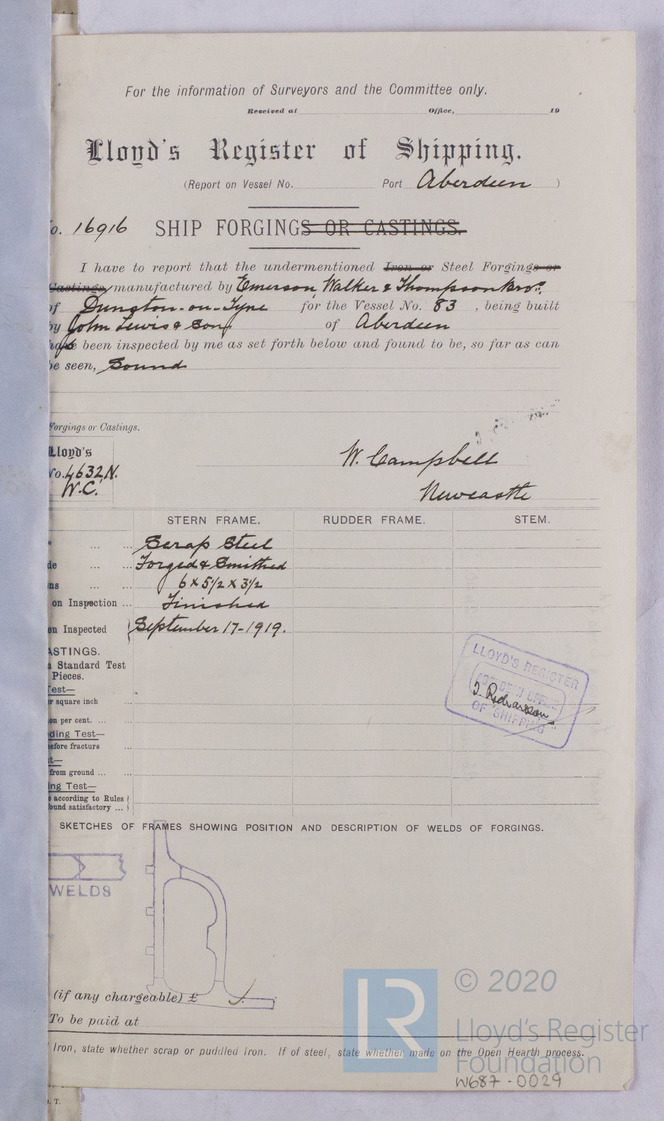 For the information of Surveyors and the Committee only.
Received at Office, 19
Lloyd's Register of Shipping.
(Report on Vessel No. Port Aberdeen )
o. 16916 SHIP FORGINGS OR CASTINGS.
I have to report that the undermentioned Iron or Steel Forgings or
Castings manufactured by Emerson, Walker & Thompson Bros.
of Dunston-on-Tyne for the Vessel No. 83, being built
by John Lewis & Sons of Aberdeen
have been inspected by me as set forth below and found to be, so far as can
be seen, Sound
Forgings or Castings.
Lloyd's
No. 4632N.
W.C.
W. Campbell
Newcastle
STERN FRAME. RUDDER FRAME. STEM.
... ... Scrap Steel
de ... ... Forged & Smithed
ns ... ... 6 x 5 1/2 x 3 1/2
on Inspection ... Finished
en Inspected September 17-1919.
ASTINGS.
Standard Test
Pieces.
Test—
r square inch
on per cent. ...
ding Test—
before fracture ...
t—
from ground ... ...
ing Test—
e according to Rules
ound satisfactory ...
LLOYD'S REGISTER
OF SHIPPING
SKETCHES OF FRAMES SHOWING POSITION AND DESCRIPTION OF WELDS OF FORGINGS.
WELDS
(if any chargeable) £
To be paid at
Iron, state whether scrap or puddled iron. If of steel, state whether made on the Open Hearth process.
LR
© 2020
Lloyd's Register
Foundation
W687-0029
. T.